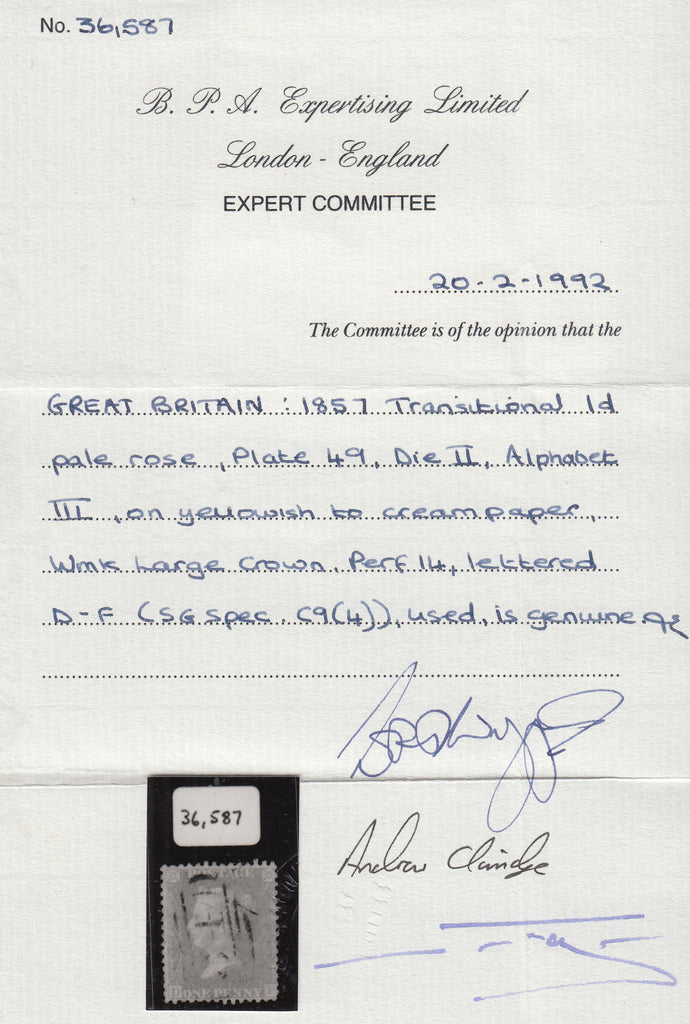 No. 36,587
B. P. A. Expertising Limited
London - England
EXPERT COMMITTEE
20-2-1992
The Committee is of the opinion that the
GREAT BRITAIN : 1857 Transitional 1d
pale rose, Plate 49, Die II, Alphabet
III, on yellowish to cream paper,
Wmk Large Crown, Perf 14, lettered
D-F (SG Spec. C9(4)), used, is genuine
36,587
Andrew Claridge
POSTAGE
D ONE PENNY F